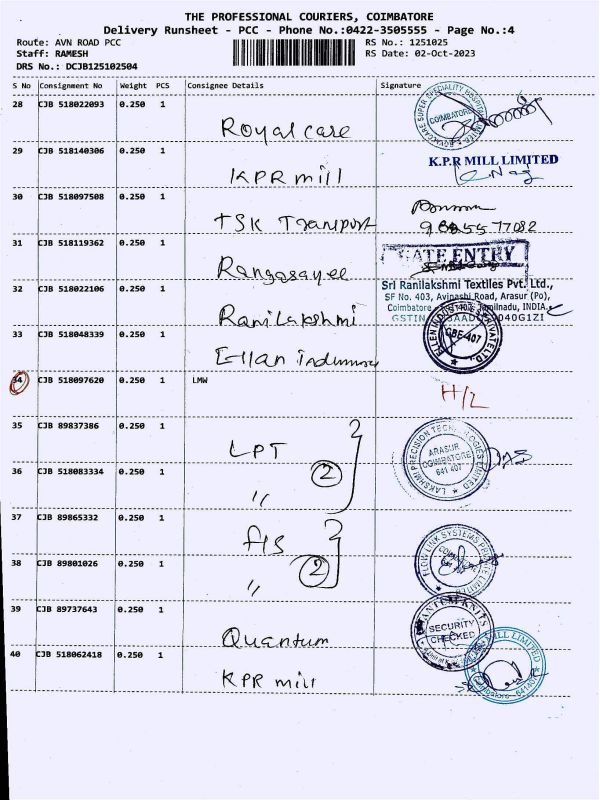 THE PROFESSIONAL COURIERS, COIMBATORE
Delivery Runsheet - PCC - Phone No.:0422-3505555 - Page No.:4
Route: AVN ROAD PCC RS No.: 1251025
Staff: RAMESH RS Date: 02-Oct-2023
DRS No.: DCJB125102504
S No Consignment No Weight PCS Consignee Details Signature
28 CJB 518022093 0.250 1 Royal care
COIMBATORE
29 CJB 518140306 0.250 1 KPR mill
K.P.R MILL LIMITED
30 CJB 518097508 0.250 1 TSK Transport
77082
31 CJB 518119362 0.250 1 Rangasayee
GATE ENTRY
32 CJB 518022106 0.250 1 Ranilakshmi
Sri Ranilakshmi Textiles Pvt. Ltd.,
SF No. 403, Avinashi Road, Arasur (Po),
Coimbatore Tamilnadu, INDIA.
GSTIN
33 CJB 518048339 0.250 1 Ellan
CBE-407
34 CJB 518097620 0.250 1 LMW
35 CJB 89837386 0.250 1 LPT
36 CJB 518083334 0.250 1 " 2
LAKSHMI PRECISION TECHNOLOGIES LIMITED
ARASUR
COIMBATORE
641 407
37 CJB 89865332 0.250 1
38 CJB 89801026 0.250 1 " 2
FLOW LINK SYSTEMS PRIVATE LIMITED
39 CJB 89737643 0.250 1 Quantum
QUANTUM KNITS
SECURITY
CHECKED
40 CJB 518062418 0.250 1 KPR mill
MILL LIMITED